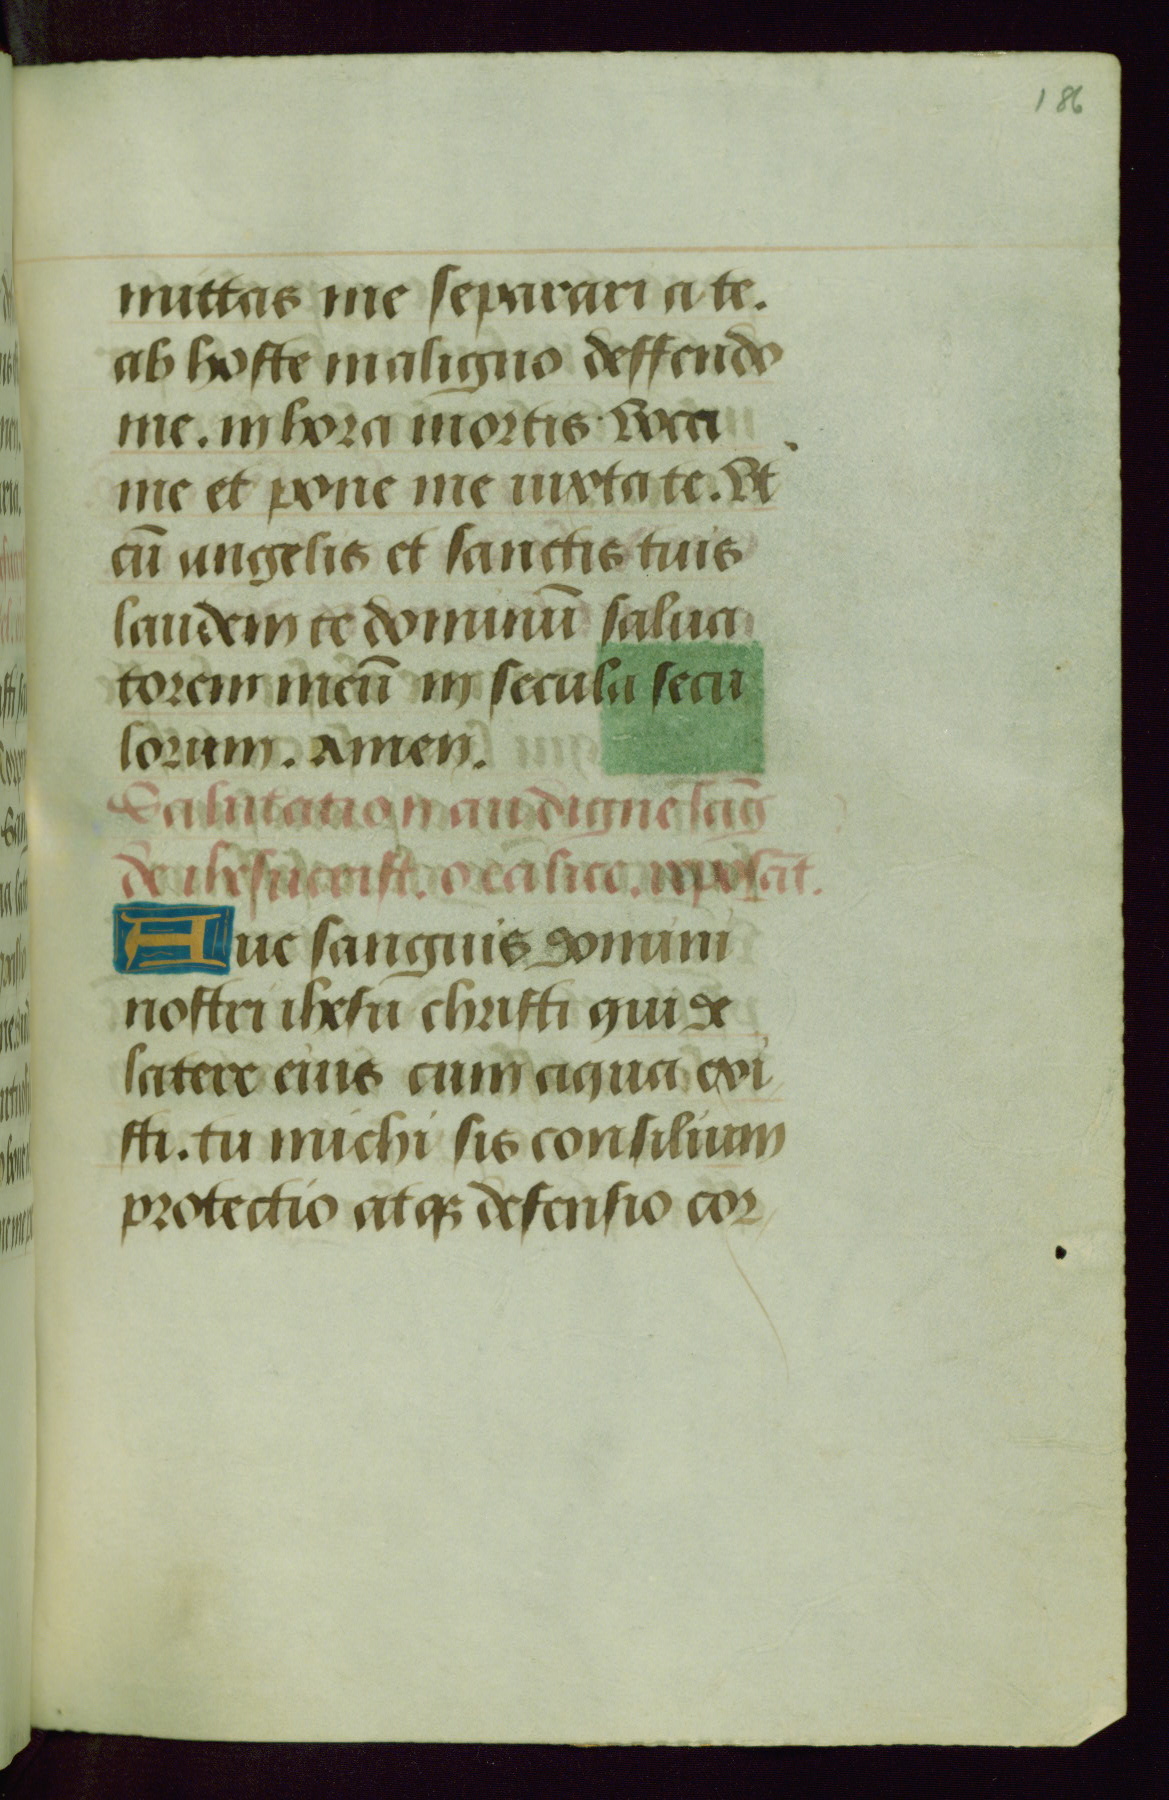 186
mittas me separari a te.
ab hoste maligno deffendo
me. in hora mortis. Voca
me et pone me iuxta te. Vt
cū angelis et sanctis tuis
laudem te dominū salua
torem meū in secula secu
lorum. amen.
Salutation au digne sāg
de ihesucrist. o cālice. reposāt.
Aue sanguis domini
nostri ihesu christi qui de
latere eius cum aqua exi
sti. tu michi sis consilium
protectio atqꝫ defensio cor